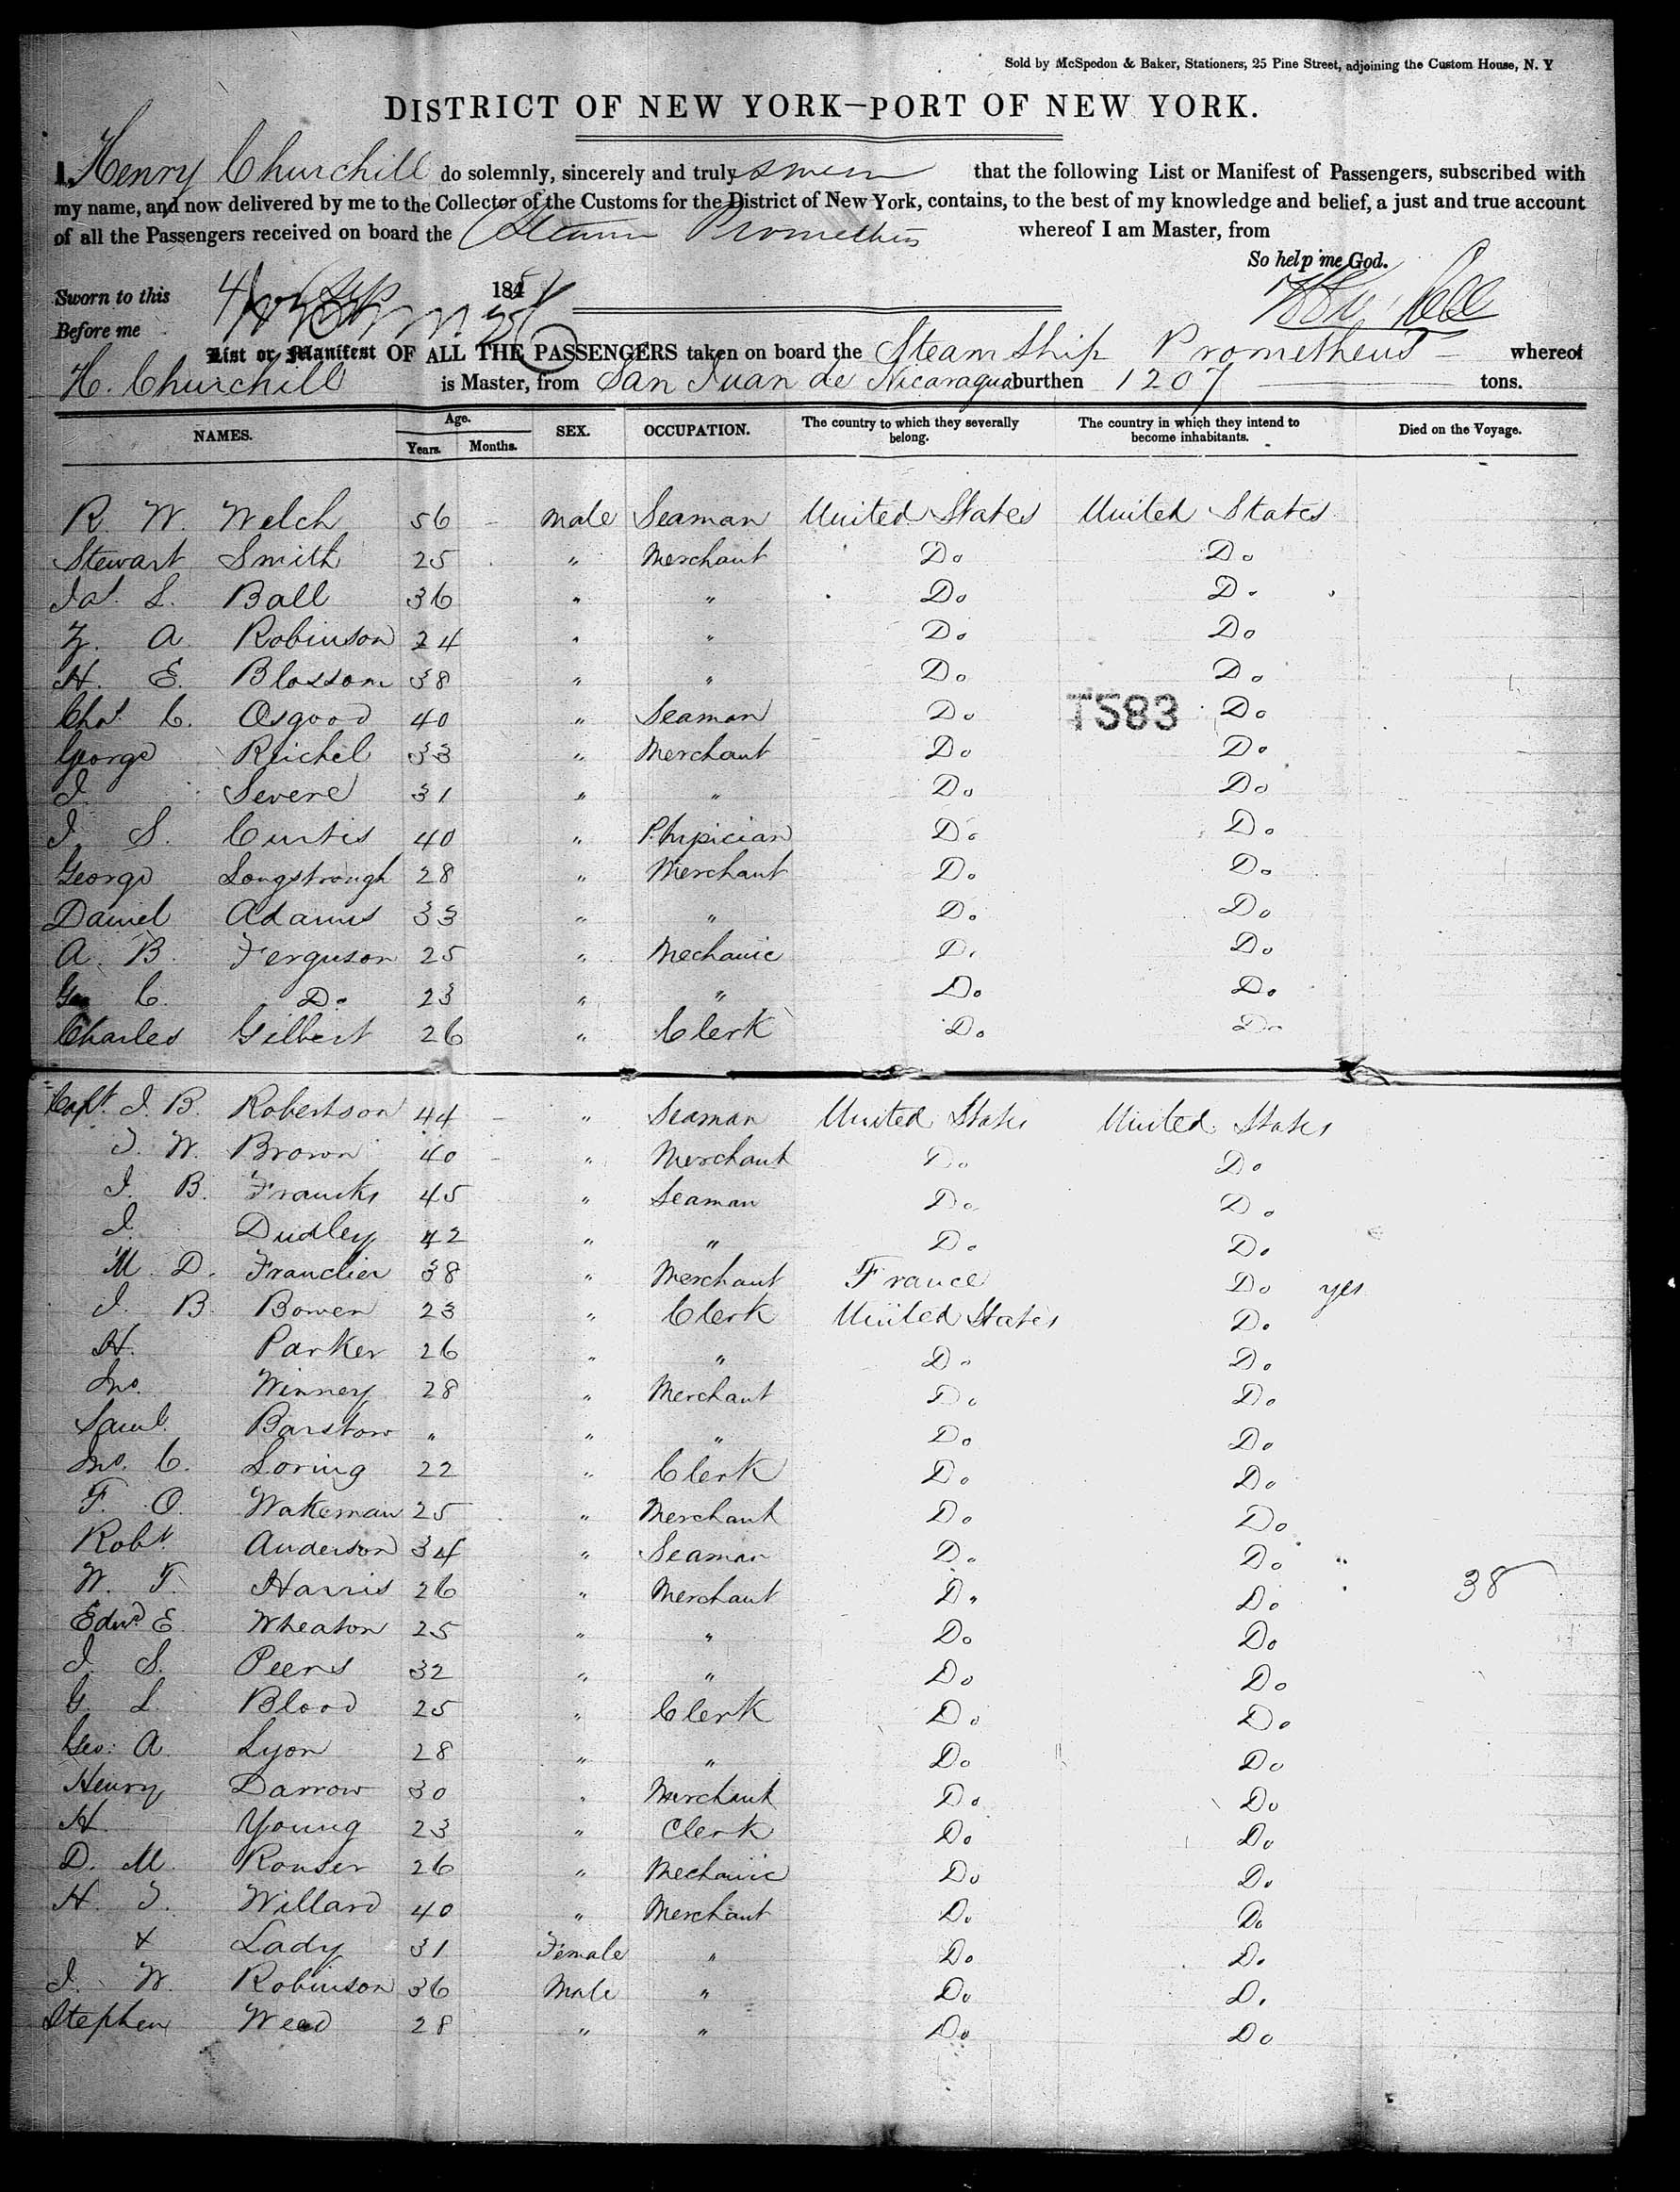 Sold by McSpedon & Baker, Stationers, 25 Pine Street, adjoining the Custom House, N. Y
DISTRICT OF NEW YORK—PORT OF NEW YORK.
I, Henry Churchill do solemnly, sincerely and truly swear that the following List or Manifest of Passengers, subscribed with
my name, and now delivered by me to the Collector of the Customs for the District of New York, contains, to the best of my knowledge and belief, a just and true account
of all the Passengers received on board the Steam Prometheus whereof I am Master, from
So help me God.
Sworn to this 4 Sep 184
Before me
List or Manifest OF ALL THE PASSENGERS taken on board the Steam Ship Prometheus whereof
H. Churchill is Master, from San Juan de Nicaragua burthen 1207 tons.
NAMES. Age. Years. Months. SEX. OCCUPATION. The country to which they severally belong. The country in which they intend to become inhabitants. Died on the Voyage.
R. W. Welch 56 - male Seaman United States United States
Stewart Smith 25 " Merchant Do Do
Jas. L. Ball 36 " " Do Do
Z. A. Robinson 24 " " Do Do
H. E. Blossom 38 " " Do Do
Chas. C. Osgood 40 " Seaman Do T583 Do
George Reichel 33 " Merchant Do Do
J. Severe 31 " " Do Do
J. S. Curtis 40 " Physician Do Do
George Longstrough 28 " Merchant Do Do
Daniel Adams 33 " " Do Do
A. B. Ferguson 25 " Mechanic Do Do
Geo C. Do 23 " " Do Do
Charles Gilbert 26 " Clerk Do Do
Capt. J. B. Robertson 44 - " Seaman United States United States
J. W. Brown 40 - " Merchant Do Do
J. B. Francks 45 " Seaman Do Do
J. Dudley 42 " " Do Do
M. D. Franclier 38 " Merchant France Do yes
J. B. Bowen 23 " Clerk United States Do
H. Parker 26 " " Do Do
Jno. Winney 28 " Merchant Do Do
Saml. Barstow " " " Do Do
Jno. C. Loring 22 " Clerk Do Do
F. O. Wakeman 25 " Merchant Do Do
Robt. Anderson 34 " Seaman Do Do "
W. T. Harris 26 " Merchant Do Do 38
Edwd. E. Wheaton 25 " " Do Do
J. S. Peers 32 " " Do Do
G. L. Blood 25 " Clerk Do Do
Geo: A. Lyon 28 " " Do Do
Henry Darrow 30 " Merchant Do Do
H. Young 23 " Clerk Do Do
D. M. Rouser 26 " Mechanic Do Do
H. J. Willard 40 " Merchant Do Do
& Lady 31 Female " Do Do
J. W. Robinson 36 Male " Do Do
Stephen Weed 28 " " Do Do